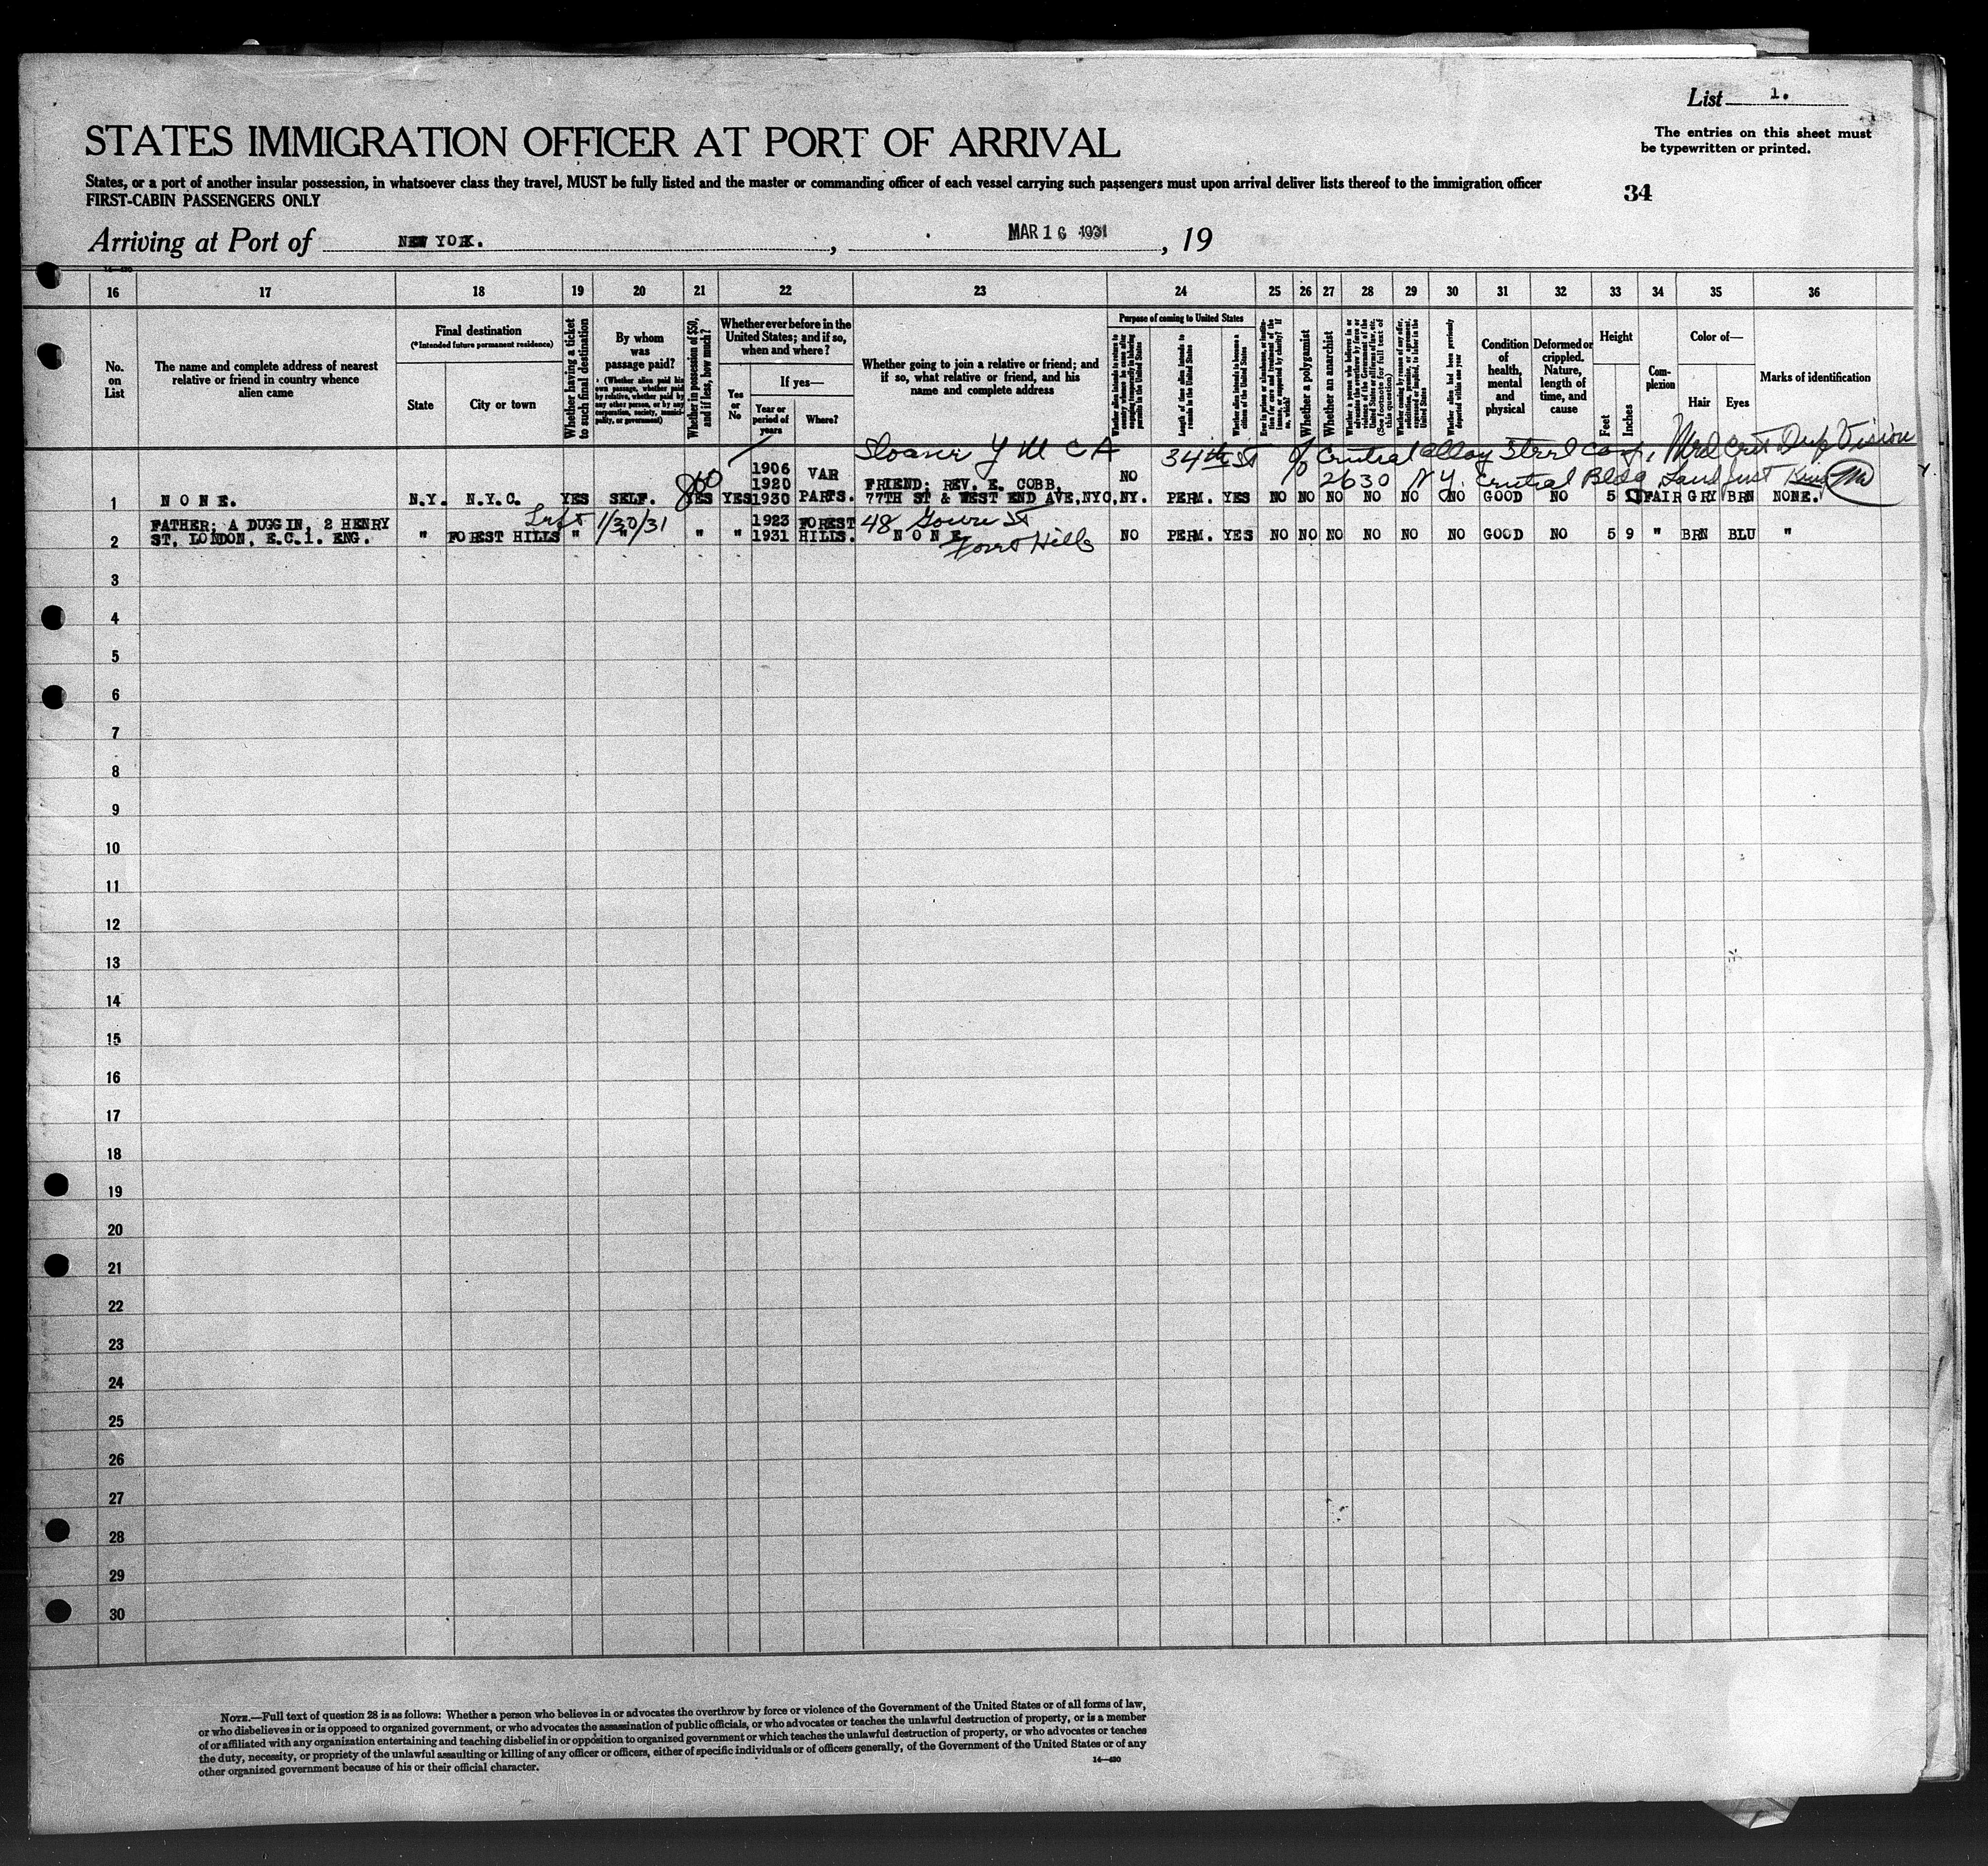 List 1.
The entries on this sheet must
be typewritten or printed.
STATES IMMIGRATION OFFICER AT PORT OF ARRIVAL
States, or a port of another insular possession, in whatsoever class they travel, MUST be fully listed and the master or commanding officer of each vessel carrying such passengers must upon arrival deliver lists thereof to the immigration officer
FIRST-CABIN PASSENGERS ONLY
34
Arriving at Port of NEW YORK. , MAR 16 1931 , 19
16 17 18 19 20 21 22 23 24 25 26 27 28 29 30 31 32 33 34 35 36
No. on List
The name and complete address of nearest relative or friend in country whence alien came
Final destination
(*Intended future permanent residence)
State
City or town
Whether having a ticket to such final destination
By whom was passage paid?
(Whether alien paid his own passage, whether paid by relative, whether paid by any other person, or by any corporation, society, municipality, or government)
Whether in possession of $50, and if less, how much?
Whether ever before in the United States; and if so, when and where?
Yes or No
If yes—
Year or period of years
Where?
Whether going to join a relative or friend; and if so, what relative or friend, and his name and complete address
Purpose of coming to United States
Length of time alien intends to remain in the United States
Whether alien intends to become a citizen of the United States
Whether a polygamist
Whether an anarchist
(See footnote for full text of this question)
Whether alien had been previously deported within one year
Condition of health, mental and physical
Deformed or crippled. Nature, length of time, and cause
Height
Feet
Inches
Complexion
Color of—
Hair
Eyes
Marks of identification
Sloane Y M C A 34th St % Central Alloy Steel Corp,
2630 N Y. Central Bldg
800
1906 VAR
1920 FRIEND: REV. E. COBB, NO
1 NONE. N.Y. N.Y.C. YES SELF. YES YES 1930 PARTS. 77TH ST & WEST END AVE, NYC, NY. PERM. YES NO NO NO NO NO NO GOOD NO 5 FAIR GRY BRN NONE.
Left 1/30/31
FATHER; A DUGGIN, 2 HENRY 1923 FOREST 48 St
2 ST, LONDON, E.C.1. ENG. " FOREST HILLS " " " " 1931 HILLS. NONE Forest Hills NO PERM. YES NO NO NO NO NO NO GOOD NO 5 9 " BRN BLU "
3
4
5
6
7
8
9
10
11
12
13
14
15
16
17
18
19
20
21
22
23
24
25
26
27
28
29
30
NOTE.—Full text of question 28 is as follows: Whether a person who believes in or advocates the overthrow by force or violence of the Government of the United States or of all forms of law,
or who disbelieves in or is opposed to organized government, or who advocates the assassination of public officials, or who advocates or teaches the unlawful destruction of property, or is a member
of or affiliated with any organization entertaining and teaching disbelief in or opposition to organized government or which teaches the unlawful destruction of property, or who advocates or teaches
the duty, necessity, or propriety of the unlawful assaulting or killing of any officer or officers, either of specific individuals or of officers generally, of the Government of the United States or of any
other organized government because of his or their official character.
14—430